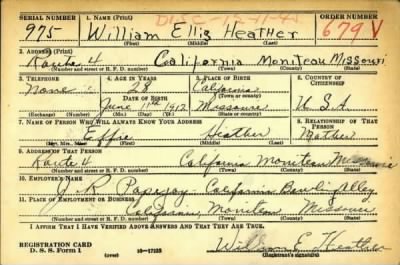 SERIAL NUMBER 1. NAME (Print) ORDER NUMBER
975 William Ellis Heather 679 V
(First) (Middle) (Last)
2. ADDRESS (Print)
Route 4 California Moniteau Missouri
(Number and street or R. F. D. number) (Town) (County) (State)
3. TELEPHONE 4. AGE IN YEARS 5. PLACE OF BIRTH 6. COUNTRY OF CITIZENSHIP
None 28 California
DATE OF BIRTH (Town or county)
June 11th 1912 Missouri U.S.A.
(Exchange) (Number) (Mo.) (Day) (Yr.) (State or country)
7. NAME OF PERSON WHO WILL ALWAYS KNOW YOUR ADDRESS 8. RELATIONSHIP OF THAT PERSON
Effie Heather Mother
(Mr., Mrs., Miss) (First) (Middle) (Last)
9. ADDRESS OF THAT PERSON
Route 4 California Moniteau Missouri
(Number and street or R. F. D. number) (Town) (County) (State)
10. EMPLOYER'S NAME
J. R. California Bowling Alley
11. PLACE OF EMPLOYMENT OR BUSINESS
California, Moniteau Missouri
(Number and street or R. F. D. number) (Town) (County) (State)
I AFFIRM THAT I HAVE VERIFIED ABOVE ANSWERS AND THAT THEY ARE TRUE.
REGISTRATION CARD
D. S. S. Form 1 (over) 16—17105 William E. Heather
(Registrant's signature)